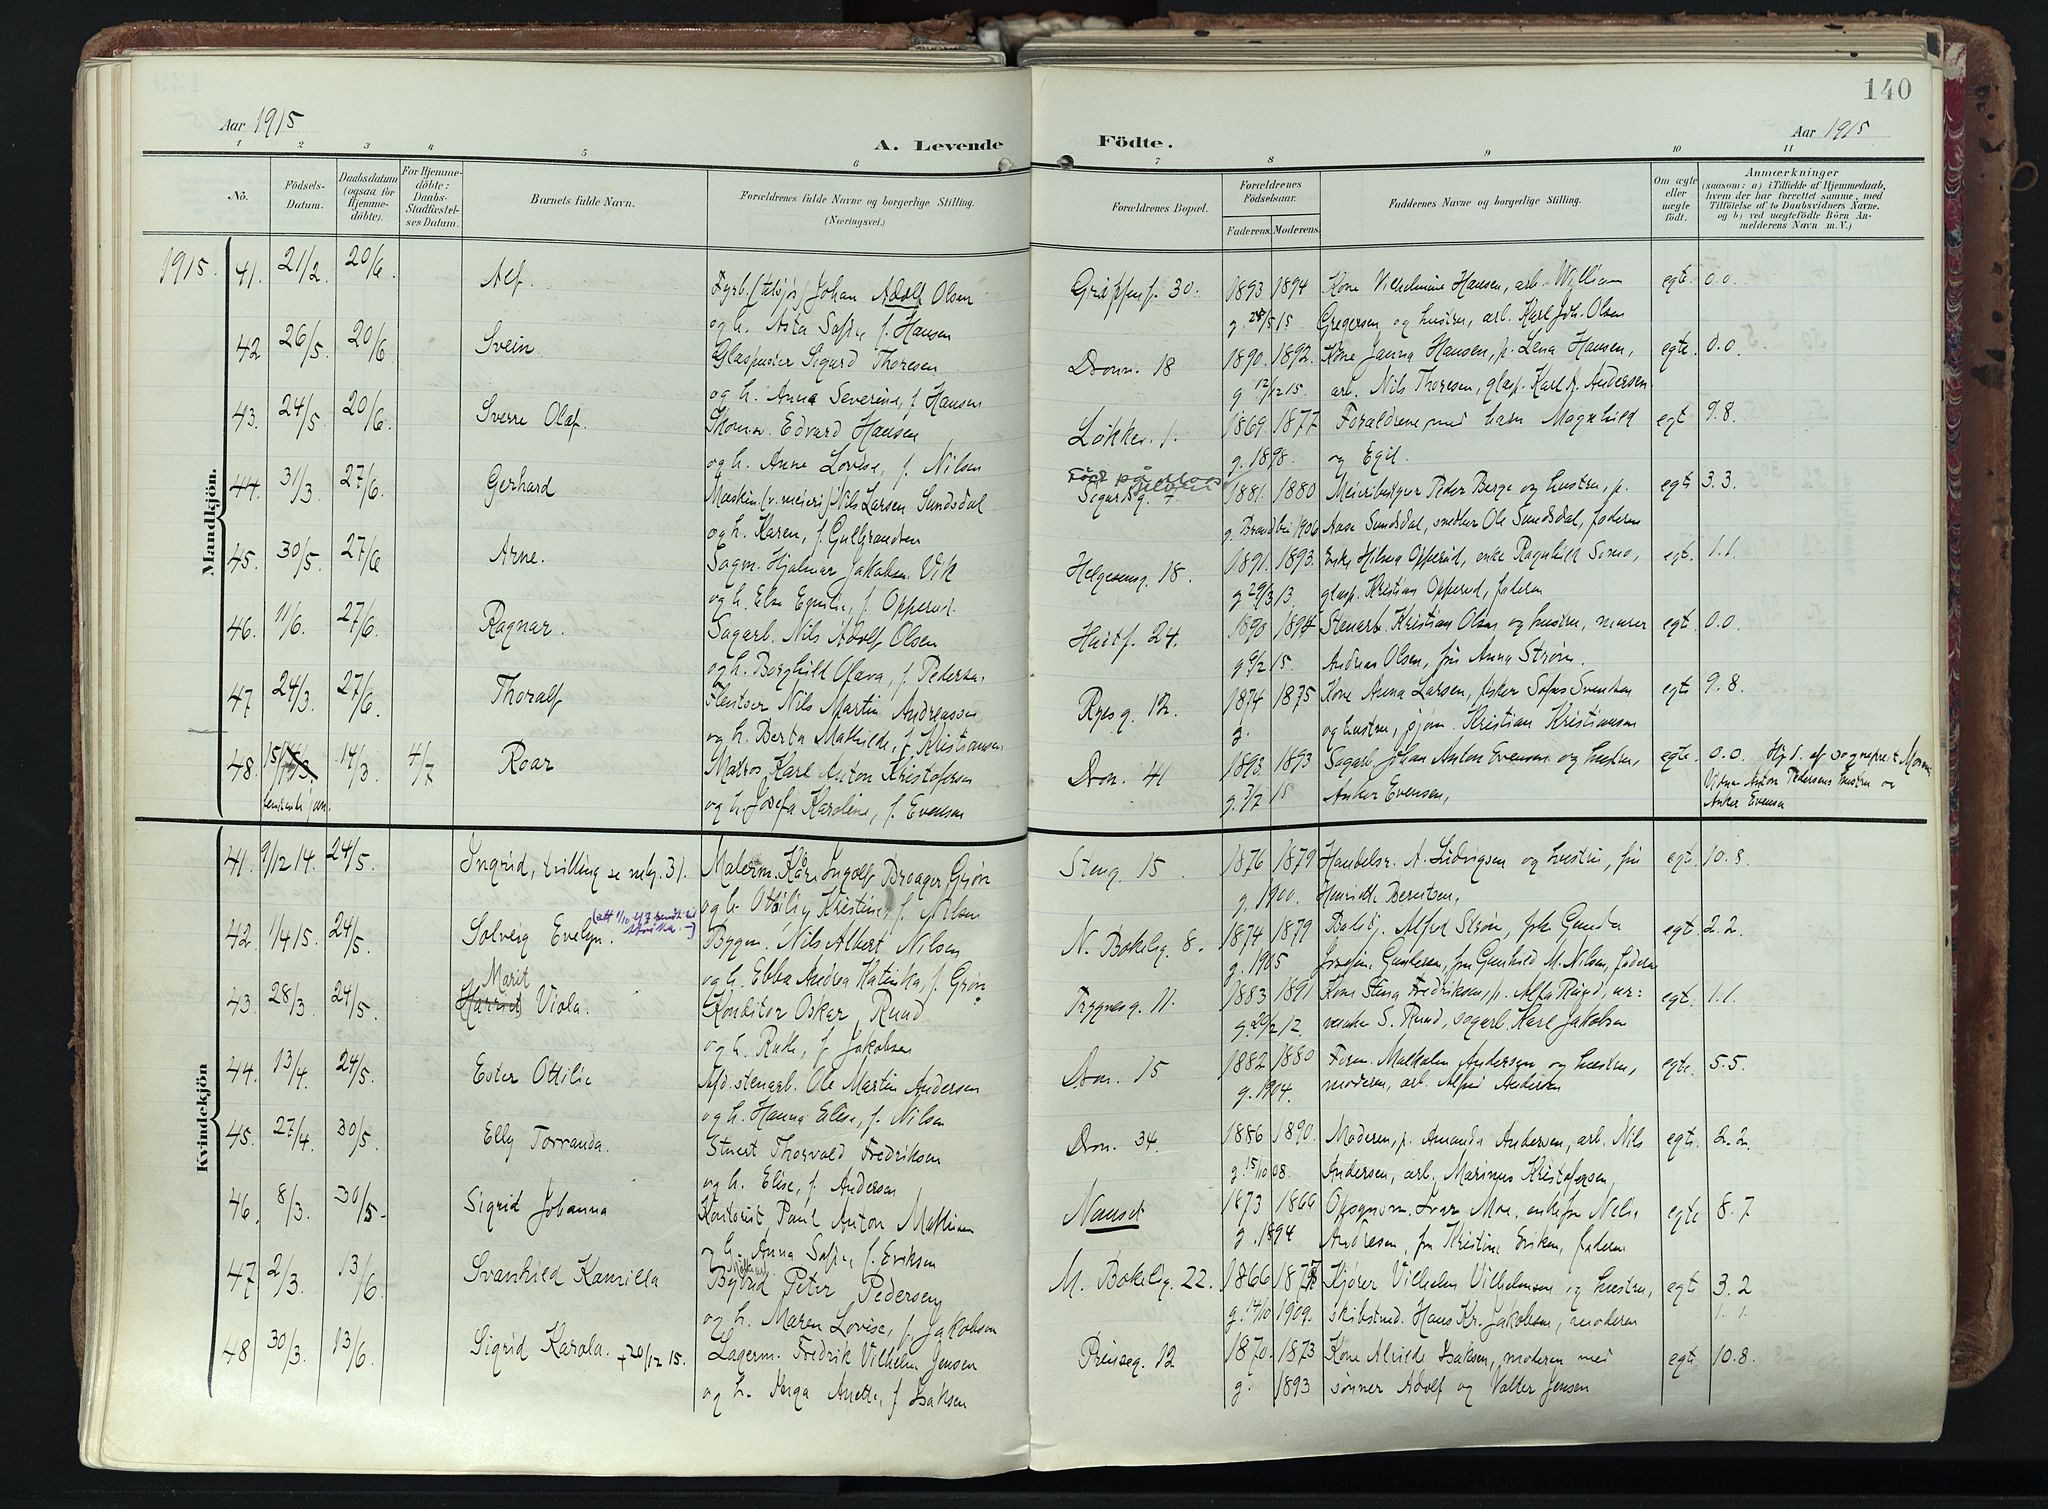 140
Aar 1915
A. Levende
Födte.
Aar 1915
1 2 3 4 5 6 7 8 9 10 11
No.
Födsels-Datum.
Daabsdatum (ogsaa for Hjemme-döbte).
For Hjemme-döbte: Daabs-Stadfæstel-ses Datum.
Barnets fulde Navn.
Forældrenes fulde Navne og borgerlige Stilling.
(Næringsvei.)
Forældrenes Bopæl.
Forældrenes Födselsaar.
Faderens. Moderens.
Faddernes Navne og borgerlige Stilling.
Om ægte eller uægte födt.
Anmærkninger
(saasom: a) i Tilfælde af Hjemmedaab, hvem der har forrettet samme, med Tilföielse af to Daabsvidners Navne. og b) ved uægtefödte Börn An-melderens Navn m. V.)
Mandkjön.
1915. 41. 21/2 20/6 Alf. Fyrb. (tilsjøs) Johan Adolf Olsen
og h. Asta Sofie, f. Hansen
30. 1893 1894 Kone Vilhelmine Hansen, arb. William egte. 0.0.
Gregersen og hustru, arb. Karl Joh. Olsen
42 26/5 20/6 Svein. Glaspuster Sigurd Thoresen
og h. Anna Severine, f. Hansen
Dronn. 18 1890. 1892. Kone Janna Hansen, p. Lena Hansen, egte. 0.0.
g 12/12 15. arb. Nils Thoresen, glasp. Karl A. Andersen
43. 24/5 20/6. Sverre Olaf. Edvard Hansen
og h. Anne Lovise, f. Nilsen
Løkkeg. 1. 1869 1877 Forældrene med barn Magnhild egt 9.8.
g. 1898. og Egil.
44. 31/3 27/6. Gerhard Maskin. (v. meieri) Nils Larsen Sundsdal
og h. Karen, f. Gulbrandsen
Sigurdsg. 7 1881. 1880 Meieribestyrer Peder Berge og hustru, p. egte 3.3.
g. Brandbu 1906 Aase Sundsdal, snedker Ole Sundsdal, faderen
45. 30/5. 27/6 Arne. Sagm. Hjalmar Jakobsen Vik
og h. Else Emilie, f. Opperud.
Helgesensg. 18. 1891. 1893. Enke Hilma Opperud, enke Ragnhild egt. 1.1.
g 29/3 13 glasp. Kristian Opperud, faderen
46. 11/6. 27/6. Ragnar. Sagarb. Nils Adolf Olsen
og h. Borghild Olava, f. Pedersen
24. 1890 1894 Stenarb. Kristian Olsen og hustru, murer egt. 0.0.
g 6/2 15. Andreas Olsen, frk Anna Strøm.
47 24/3. 27/6 Thoralf Nils Martin Andreassen
og h. Berta Mathilde, f. Kristiansen
Ryesg. 12. 1874 1875 Kone Anna Larsen, fisker Sofus Svendsen egte 9.8.
g. og hustru, sjøm. Kristian Kristiansen
48. 15/ 14/3. 14/3 4/7 Roar Matros Karl Anton Kristofersen
og h. Josefa Karoline, f. Evensen
Dron. 41 1893 1893 Sagarb. Johan Anton Evensen og hustru, egte. 0.0. Hj.d. af sogneprest
g. 3/7 15 Anker Evensen,
Vidner Anton Pedersens hustru og
Anker Evensen
Kvindekjön
41. 9/12 14. 24/5. Ingrid, tvilling se mkj. 31. Malerm. Kåre Ingolf Broager Grøn
og h. Ottilie Kristine, f. Nilsen
Steng. 15. 1876 1879 Handelsr. A. Ludvigsen og hustru, frk egt. 10.8.
g. 1900. Henriette Berntsen,
42. 1/4 15. 24/5. Solveig Evelyn. Bygm. Nils Albert Nilsen
og h. Ebba Andrea Katinka, f. Grøn
N. Bakelig. 8. 1874 1879 Alfred Strøm, frk Gunda egt. 2.2.
g. 1905 Josefine Gundersen, fru Gunhild M. Nilsen, faderen
43. 28/3. 24/5. Marit
Harriet Viola. Konditor Oskar Ruud
og h. Ruth, f. Jakobsen
Trygvesg. 11. 1883 1891 Kone Stina Fredriksen, p. Alfa Ruud, ur- egt. 1.1.
g. 20/2 12 S. Ruud, sagarb. Karl Jakobsen
44. 13/4. 24/5. Ester Ottilie Afd. stenarb. Ole Martin Andersen
og h. Hanna Elise, f. Nilsen
Dron. 15 1882 1880 Form. Malkolm Andersen og hustru, egte. 5.5.
g. 1904. moderen, arb. Alfred Andersen
45. 27/4 30/5. Elly Torranda. Stuert Thorvald Fredriksen
og h. Elise, f. Andersen
Dron. 34. 1886 1890. Moderen, p. Amanda Andersen, arb. Nils egte 2.2.
g. 15/10 08. Andersen, arb. Marinus Kristofersen,
46. 8/3. 30/5. Sigrid Johanna Kontorist Paul Anton Mathisen
og h. Anna Sofie, f. Eriksen
Nanset 1873 1866 Opsynsm. Ivar Moe, enkefru Nelsi egte 8.7
g. 1894 Andresen, fru Kristine Eriksen, faderen
47. 2/3. 13/6. Svanhild Kamilla Bybud Peter Pedersen
og h. Maren Lovise, f. Jakobsen
M. Bakelig. 22. 1866 1877 Kjører Vilhelm Vilhelmsen og hustru, egt 3.2
g. 14/10 1909. skibstmd. Hans Kr. Jakobsen, moderen 1.1.
48 30/3. 13/6. Sigrid Karola. +20/12 15. Lagerm. Fredrik Vilhelm Jensen
og h. Helga Anette, f. Isaksen
Prinseg. 12 1870. 1873 Kone Alvilde Isaksen, moderen med egte. 10.8.
g. 1893 sønner Adolf og Valter Jensen